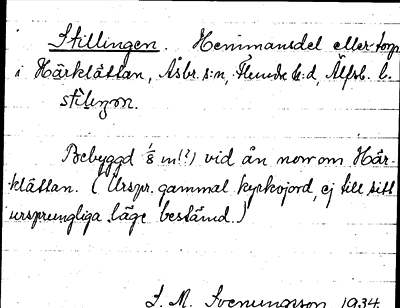 Stillingen. Hemmansdel eller torp
i Härklättan, Åsbr. s:n, Flundre h:d, Älfsb. l.
stìleŋon.
Bebyggd 1/8 m(?) vid ån norr om Här-
klättan. (Urspr. gammal kyrkojord, ej till sitt
ursprungliga läge bestämd.)
S. M. Svenungsson 1934.